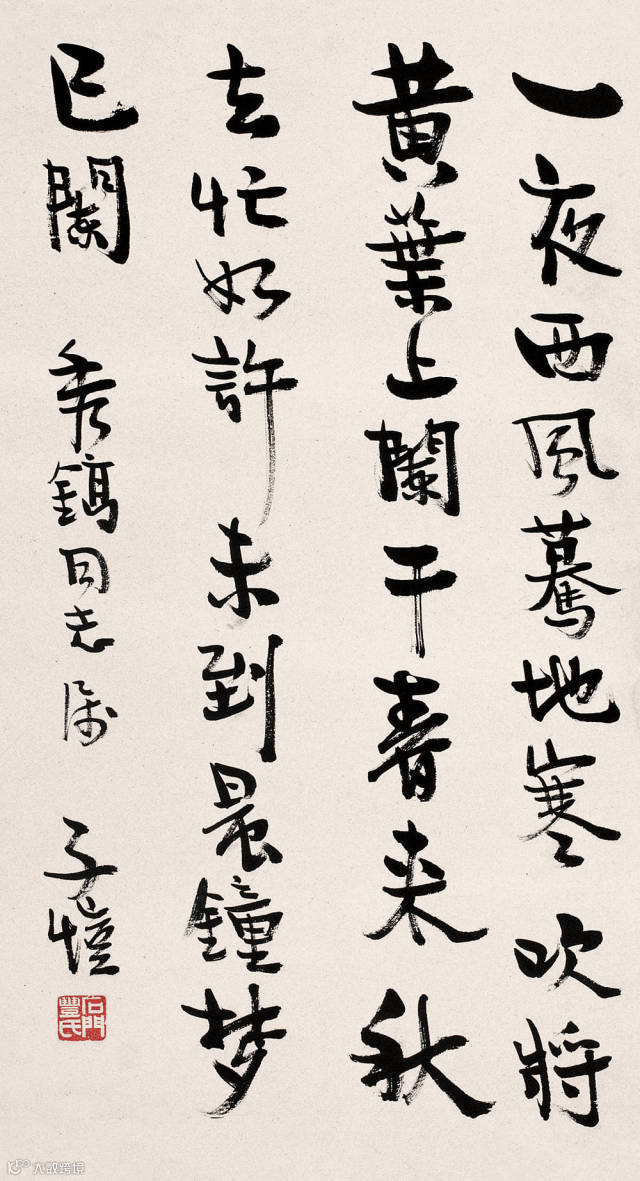 一夜西風驀地寒吹將
黄葉上闌干春来秋
去忙如許未到晨鐘梦
已闌 秀鎬同志属 子愷
石門豐氏
大数跨境